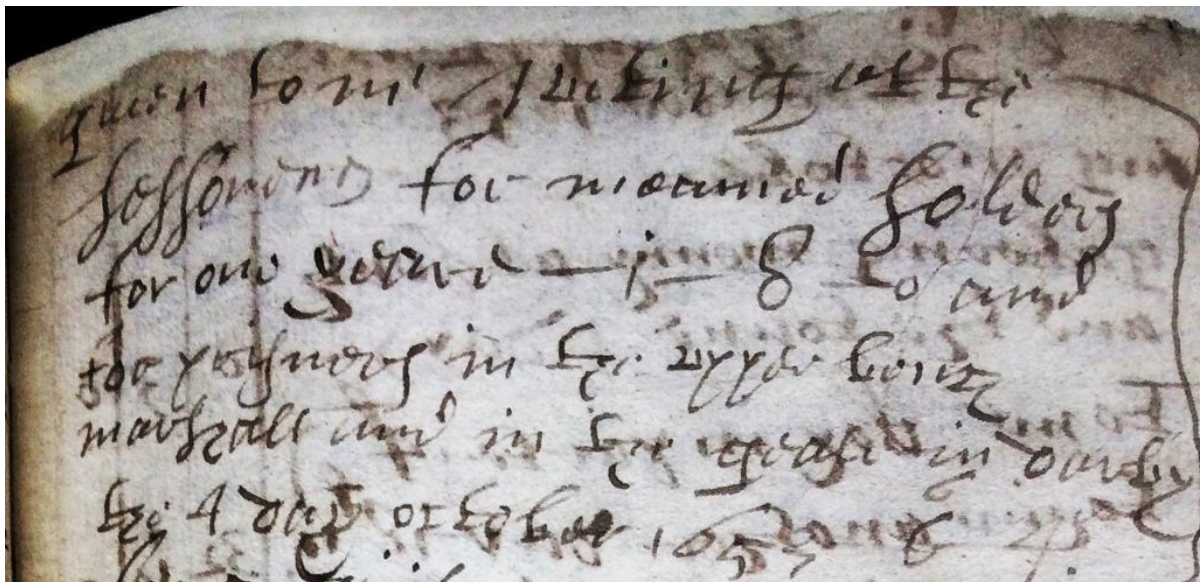 given to mr at the
sessones for meamed solders
for one yeare — j — 8 — 0 and
for prisners in the upper bench
marshall and in the geale in darby
the 4 day october